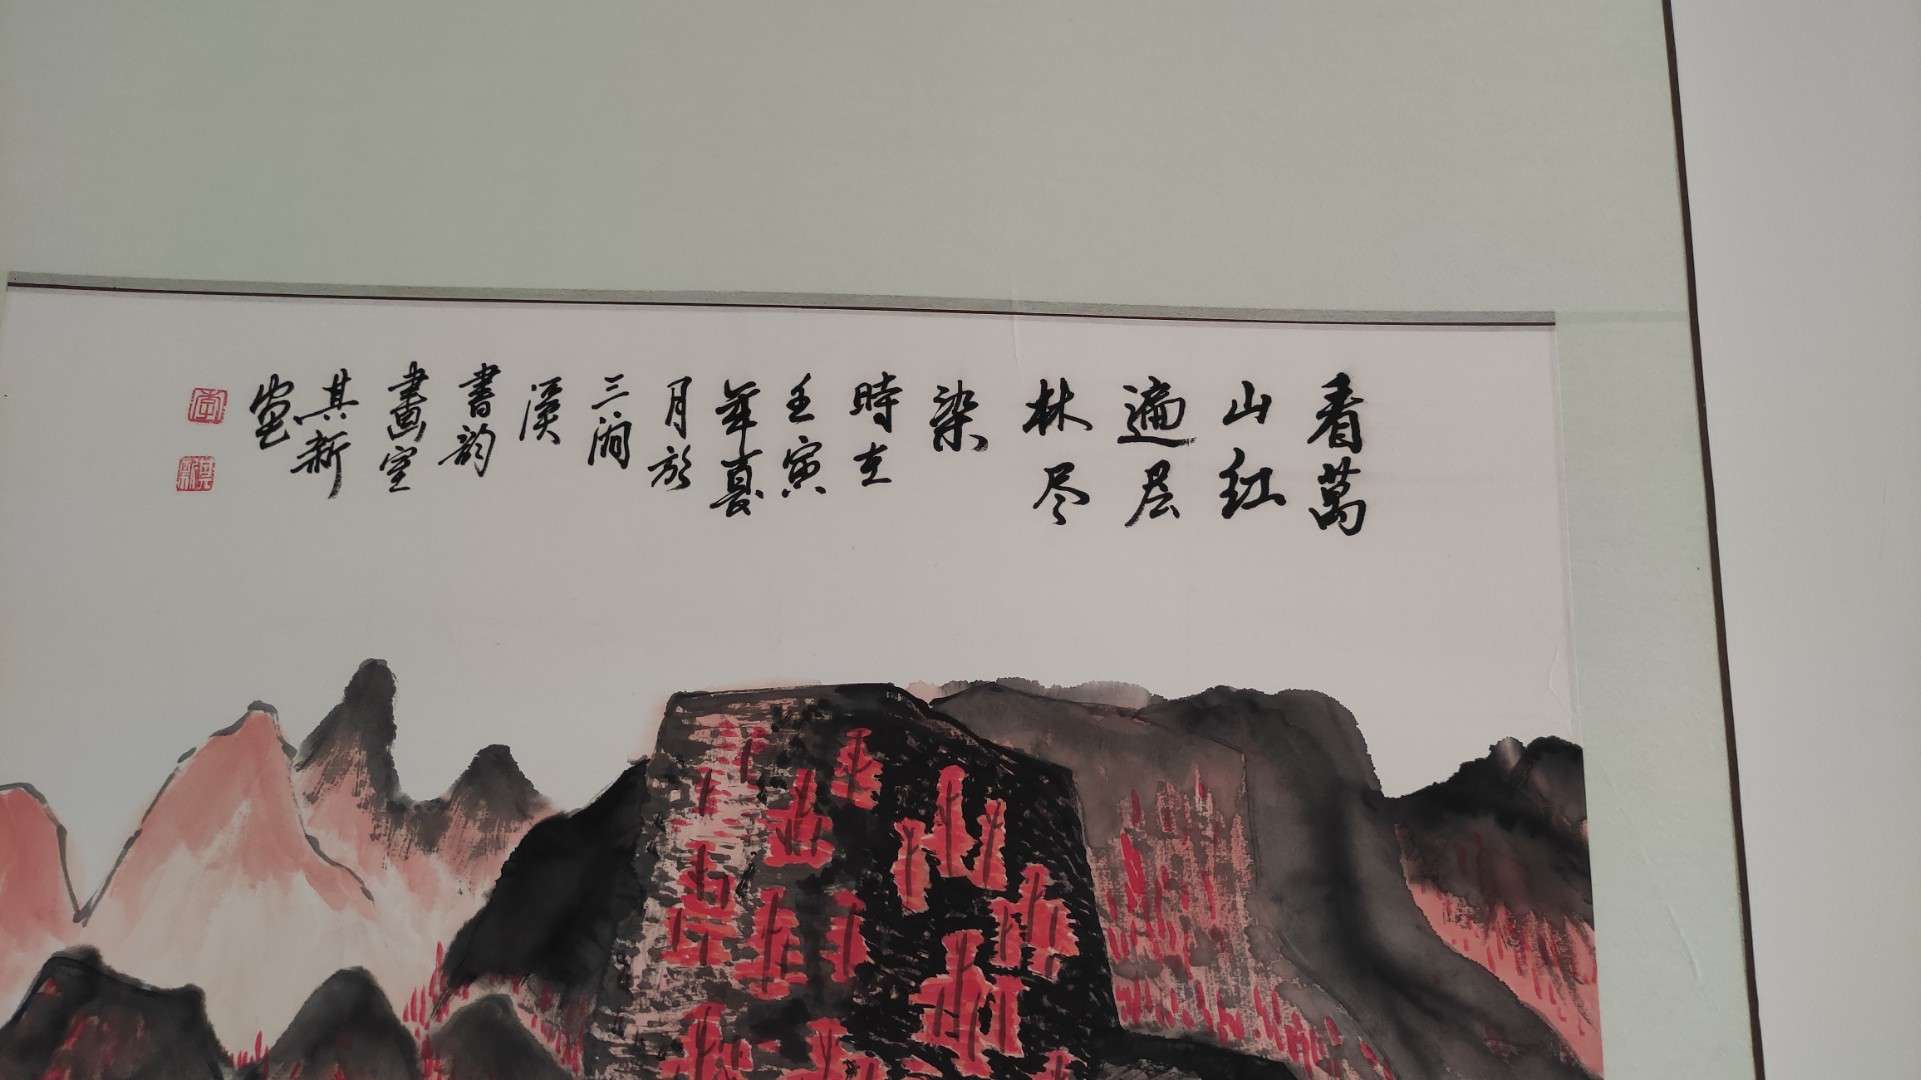 看萬
山红
遍层
林尽
染
時在
壬寅
年夏
月於
三涧
溪
書韵
畫室
其新
畫